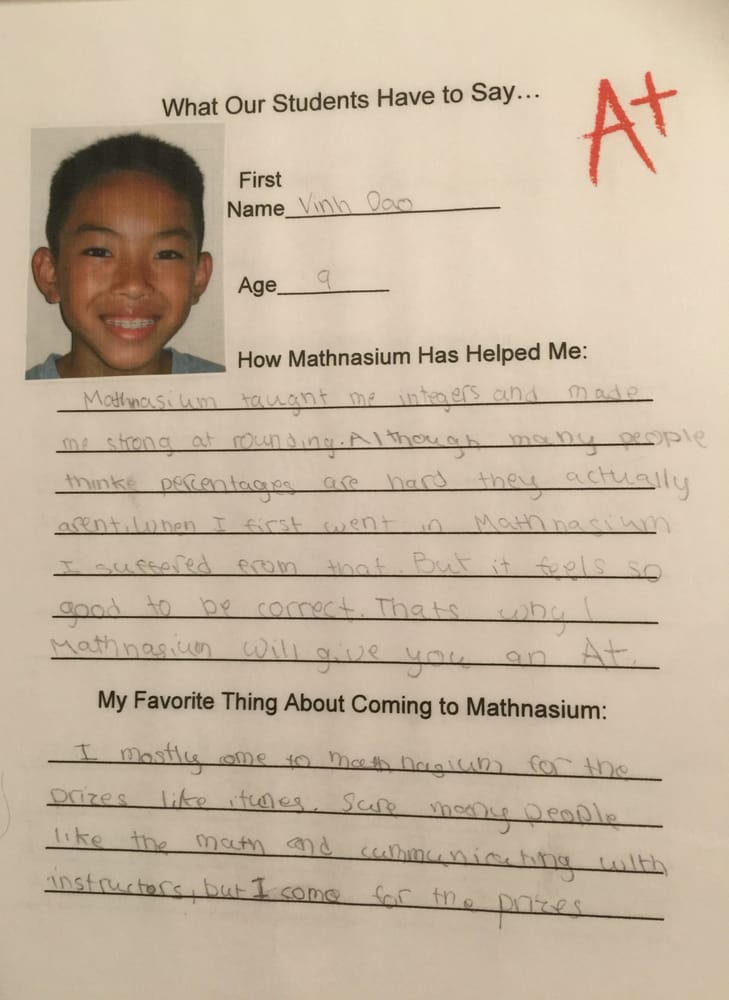 What Our Students Have to Say...
A+
First
Name Vinh Dao
Age 9
How Mathnasium Has Helped Me:
Mathnasium taught me integers and made
me strong at rounding. Although many people
thinke percentages are hard they actually
arent. When I first went in Mathnasium
I suffered from that. But it feels so
good to be correct. Thats why
Mathnasium will give you an A+.
My Favorite Thing About Coming to Mathnasium:
I mostly ome to mathnasium for the
prizes like itunes. Sure many people
like the math and cummunicating with
instructors, but I come for the prizes